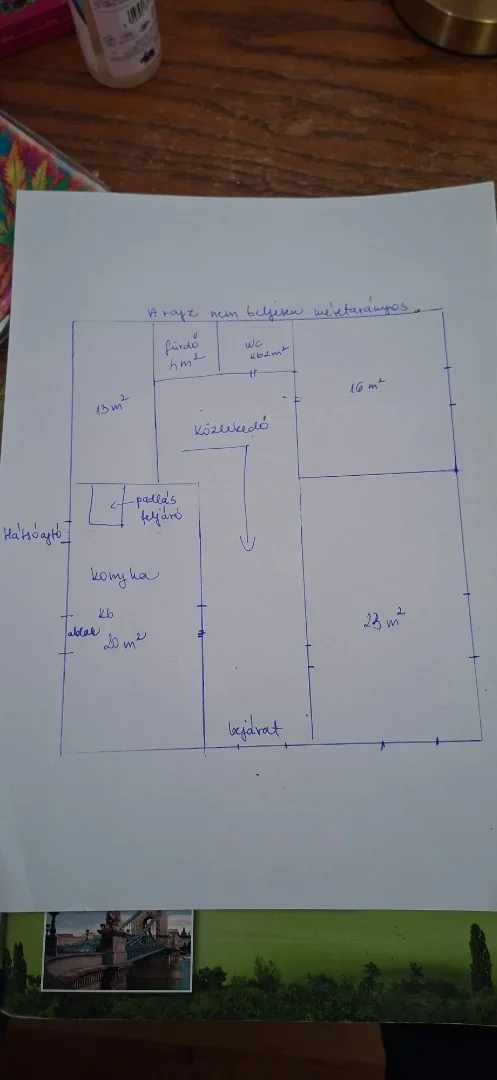 A rajz nem teljesen méretarányos.
fürdő
4 m²
WC
kb 2 m²
16 m²
13 m²
közlekedő
padlás
feljáró
Hátsóajtó
konyha
kb
ablak
20 m²
23 m²
bejárat